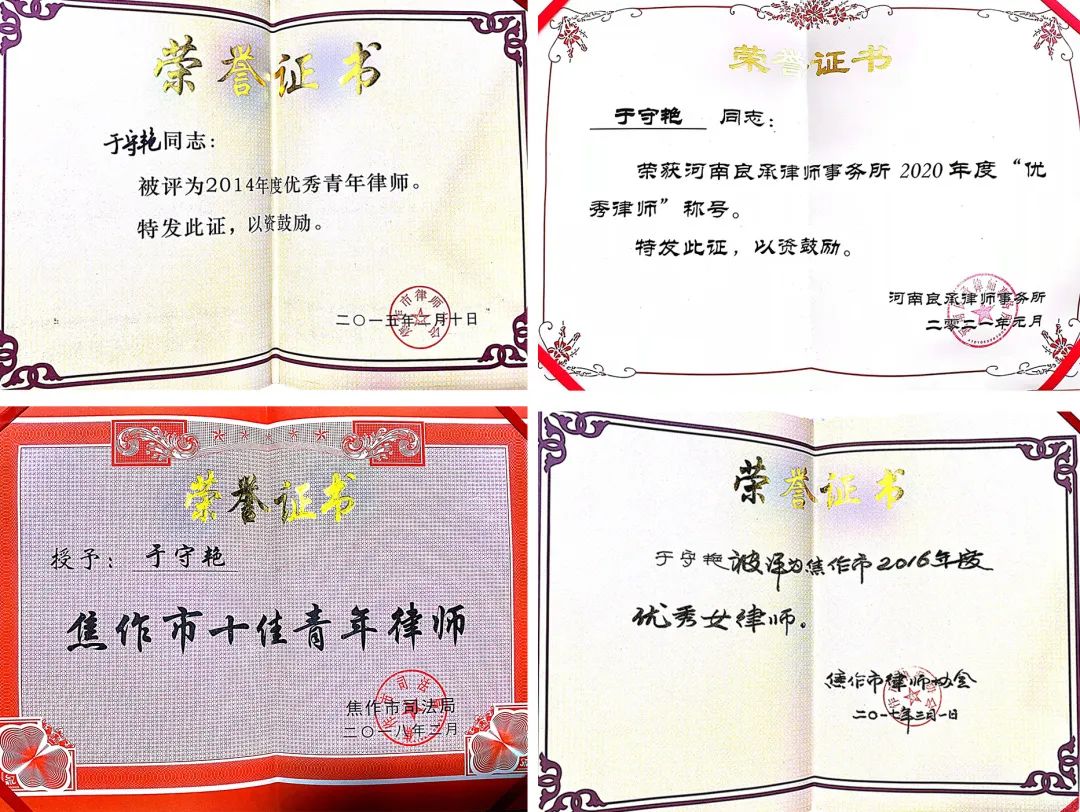 荣誉证书
于守艳同志：
被评为2014年度优秀青年律师。
特发此证，以资鼓励。
二〇一五年二月十日
荣誉证书
于守艳 同志：
荣获河南良承律师事务所 2020 年度“优
秀律师”称号。
特发此证，以资鼓励。
河南良承律师事务所
二零二一年元月
荣誉证书
授予：于守艳
焦作市十佳青年律师
焦作市司法局
二〇一八年二月
荣誉证书
于守艳被评为焦作市2016年度
优秀女律师。
焦作市律师协会
二〇一七年三月一日